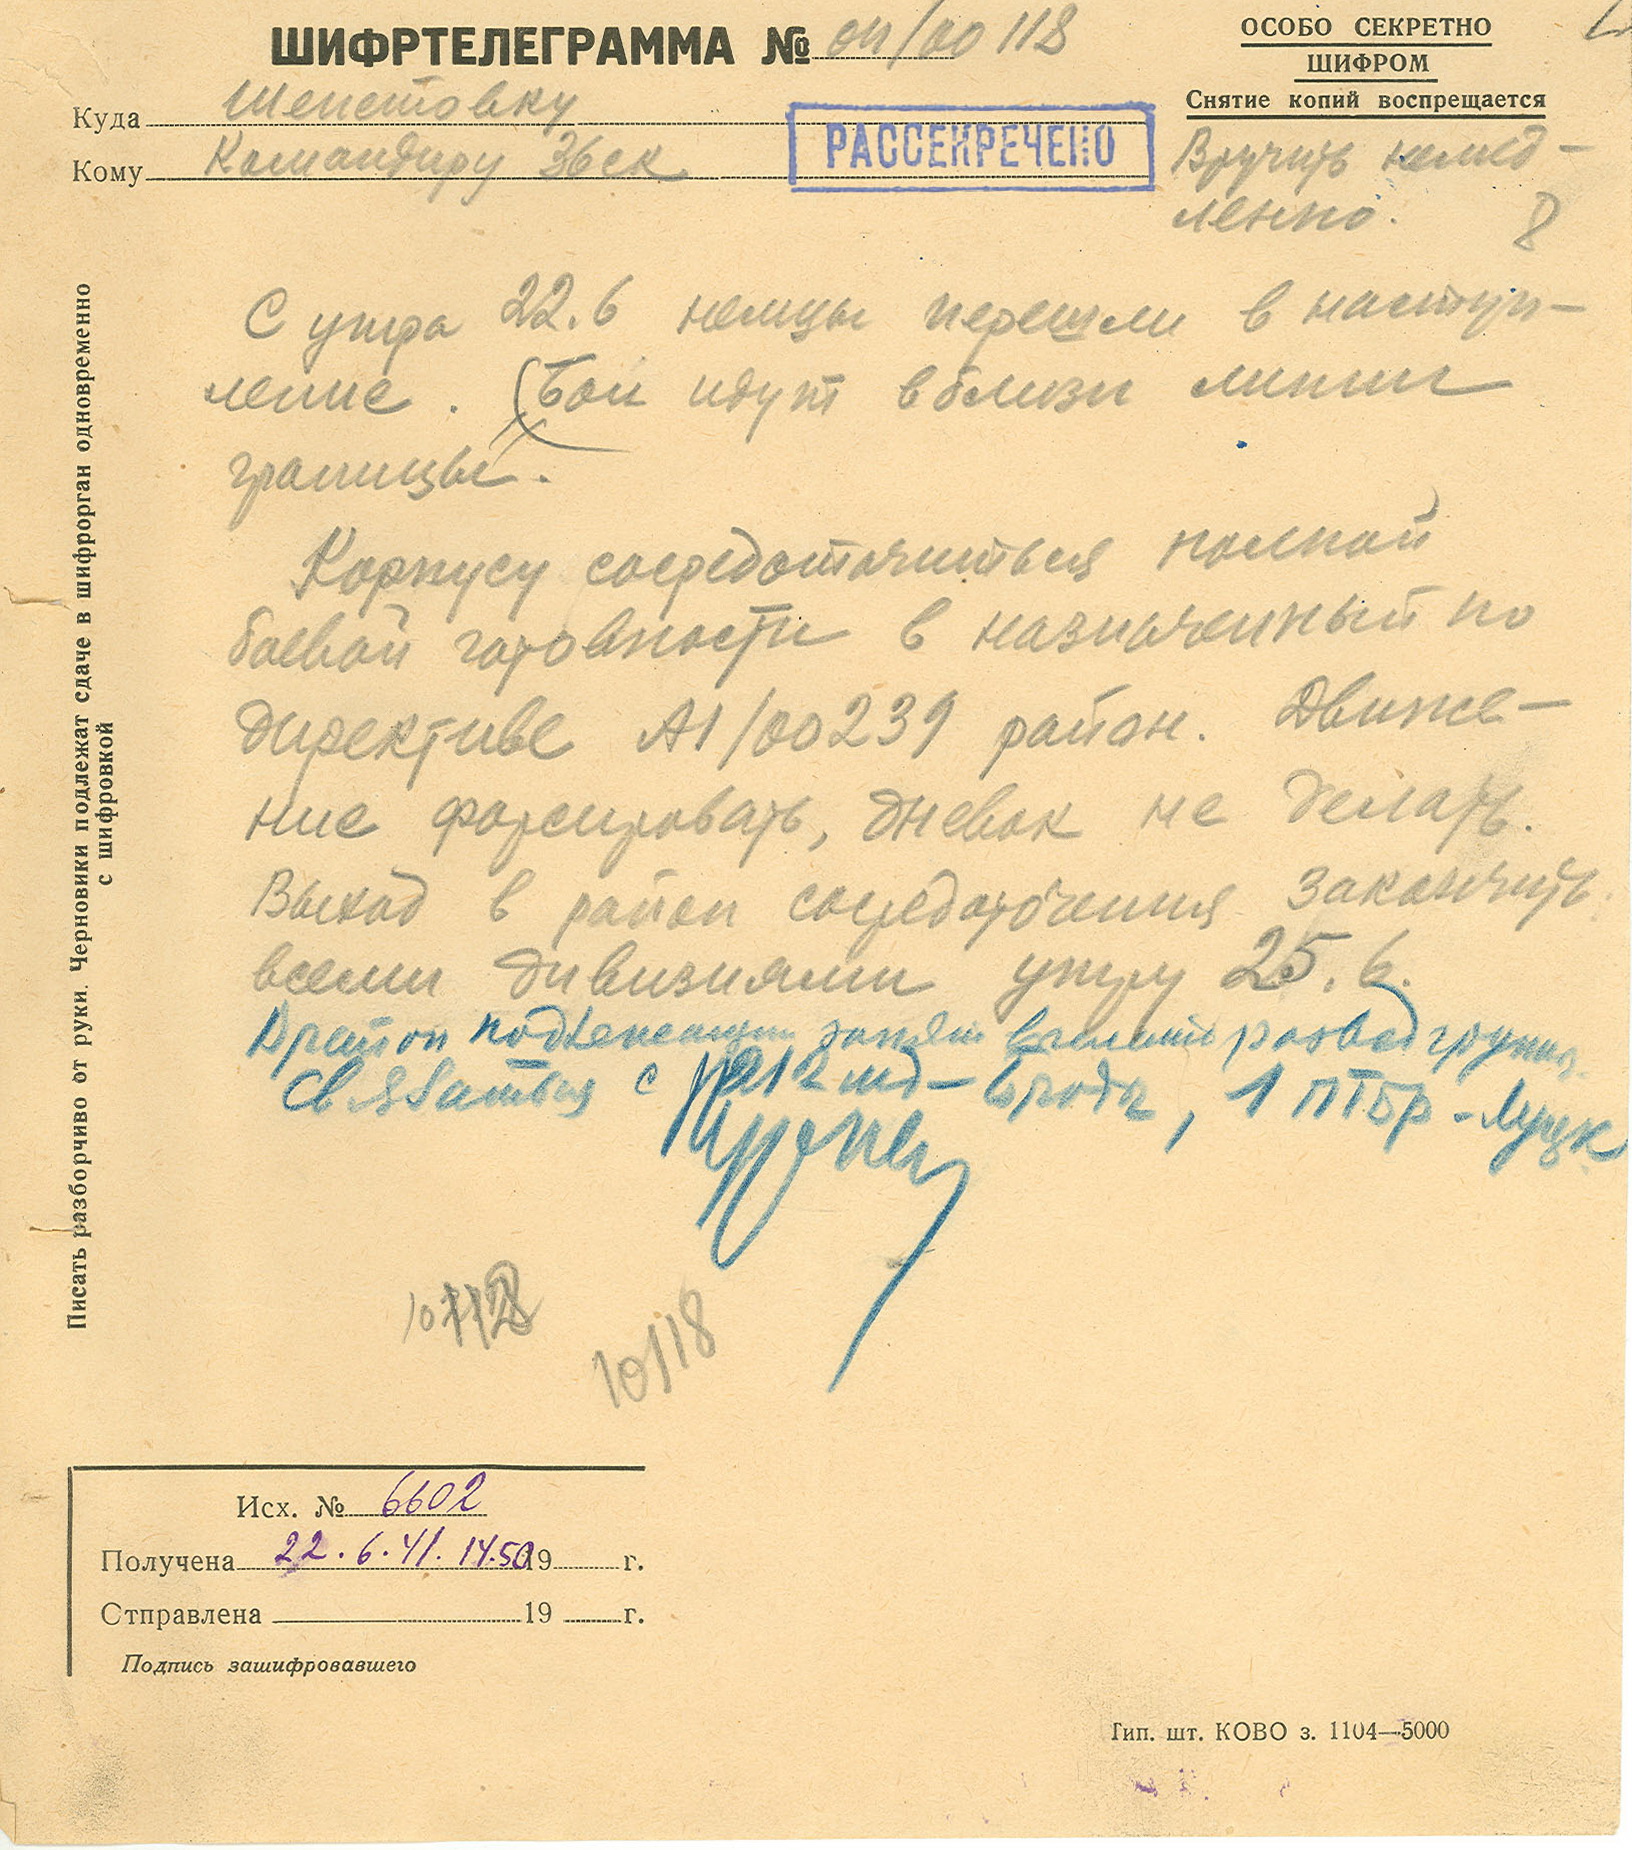 ШИФРТЕЛЕГРАММА № оп/00118
ОСОБО СЕКРЕТНО
ШИФРОМ
Снятие копий воспрещается
Куда Шепетовку
Кому Командиру 36 ск
РАССЕКРЕЧЕНО
Вручить немед-
ленно.
8
С утра 22.6 немцы перешли в наступ-
ление. Бои идут вблизи линии
границы.
Корпусу сосредоточиться полной
боевой готовности в назначенный по
директиве А1/00239 район. Движе-
ние форсировать, дневок не делать.
Выход в район сосредоточения закончить
всеми дивизиями утру 25.6.
район подлежащий занят выслать разведгруппы.
Связаться с 212 мд – Броды, 1 ПТБр – Луцк
10118
Писать разборчиво от руки. Черновики подлежат сдаче в шифрорган одновременно
с шифровкой
Исх. № 6602
Получена 22.6.41. 14.50 19 г.
Отправлена 19 г.
Подпись зашифровавшего
Тип. шт. КОВО з. 1104—5000